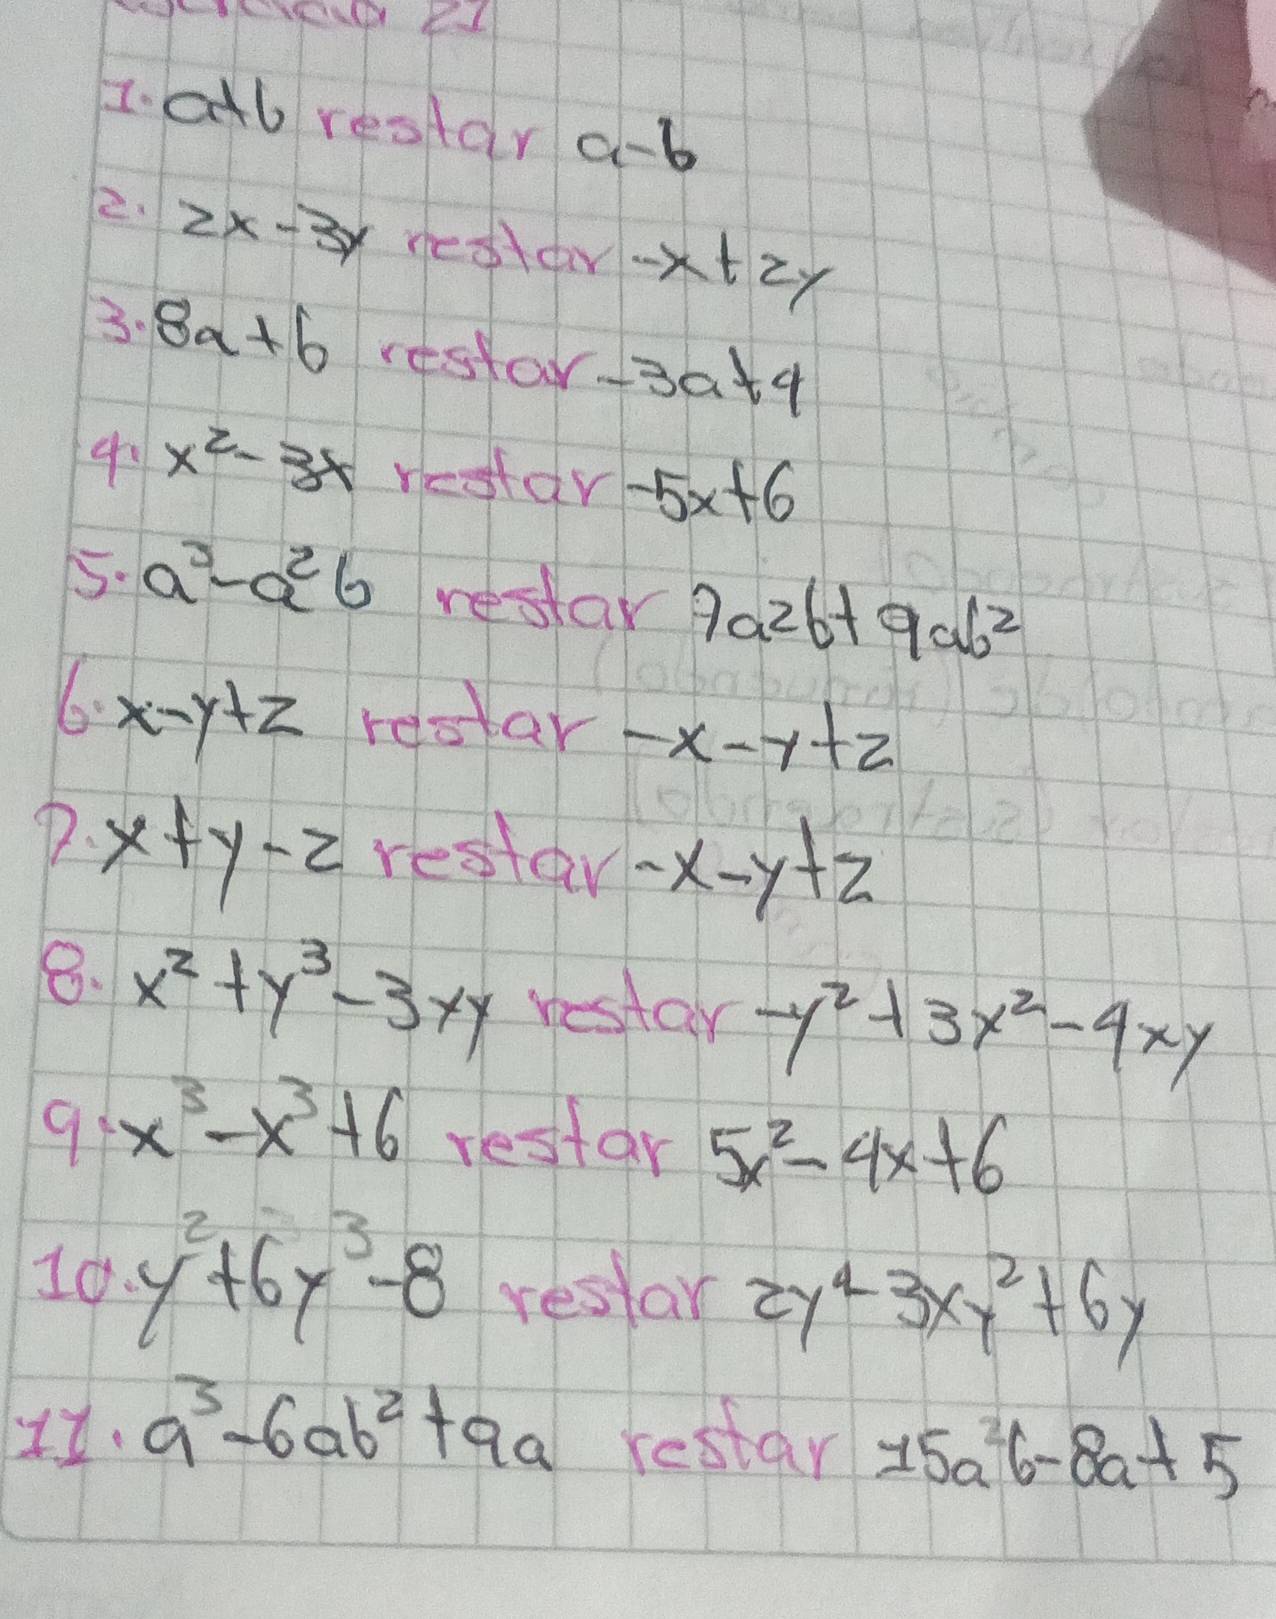 21
1. a+b restar a-b
2. 2x-3y restar -x+2y
3. 8a+b restar -3a+4
4. x²-3x restar -5x+6
5. a³-a²b restar 7a2b+9ab²
6. x-y+z restar -x-y+z
7. x+y-z restar -x-y+z
8. x²+y³-3xy restar -y²+3x²-4xy
9. x³-x³+6 restar 5x²-4x+6
10. y²+6y³-8 restar 2y⁴-3xy²+6y
11. a³-6ab²+9a restar 15a²b-8a+5